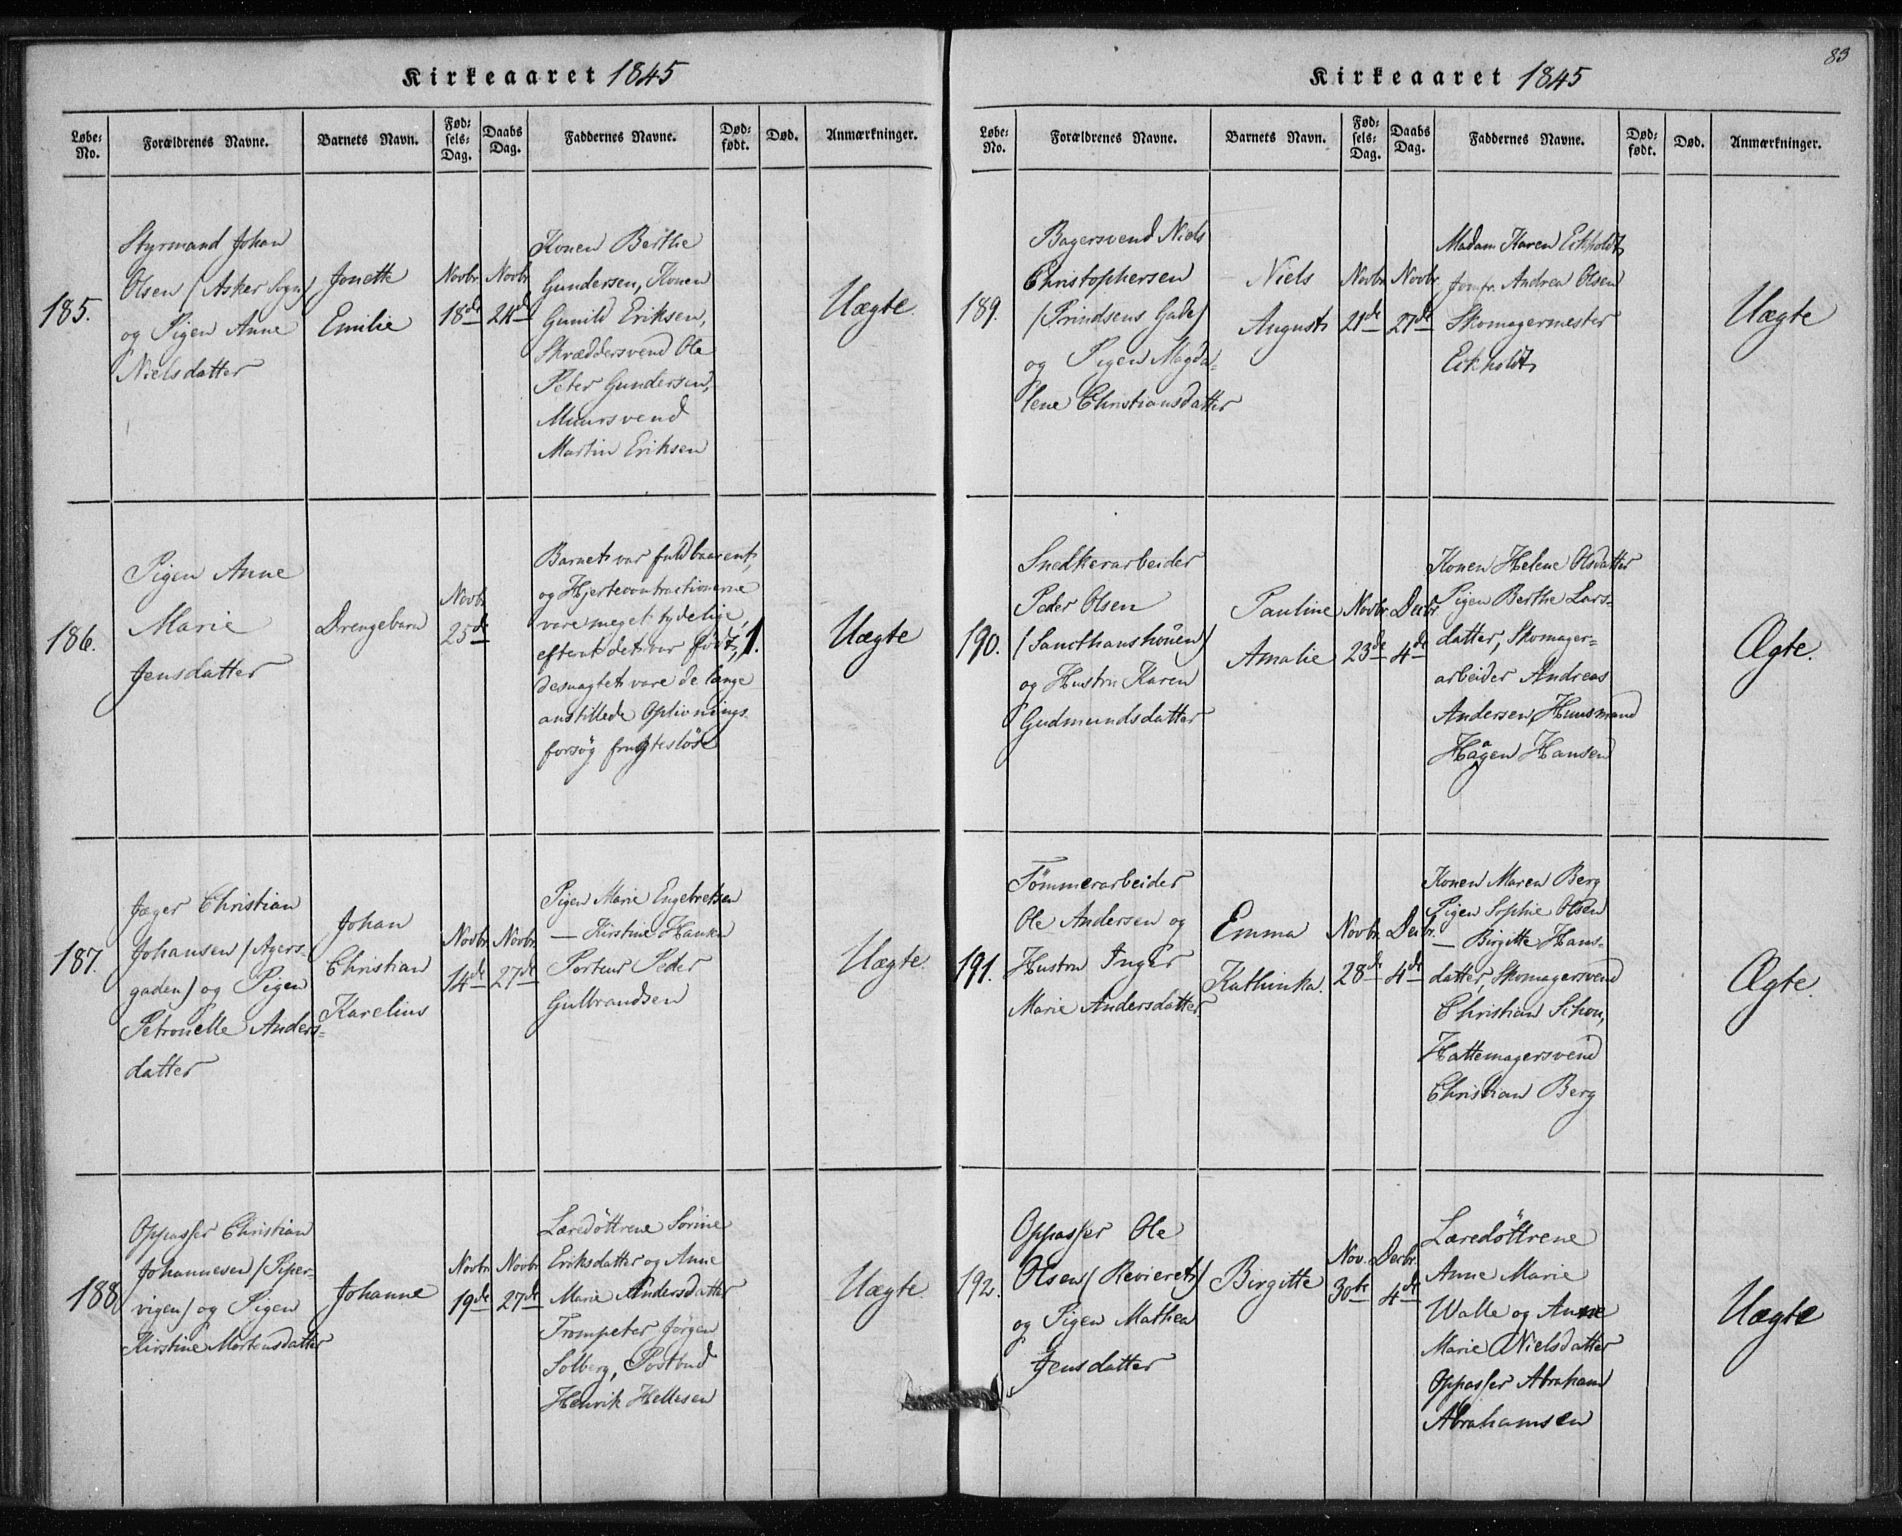 Kirkeaaret 1845
Løbe-No.
Forældrenes Navne.
Barnets Navn.
Fødsels-Dag.
Daabs Dag.
Faddernes Navne.
Dødfødt.
Død.
Anmærkninger.
185.
Styrmand Johan
Olsen (Asker Sogn)
og Pigen Anne
Nielsdatter
Jonette
Emilie
Novbr
18de
Novbr
24de
Konen Berthe
Gundersen, Konen
Gunild Eriksen,
Skræddersvend Ole
Peter Gundersen,
Muursvend
Martin Eriksen
Uægte.
186.
Pigen Anne
Marie
Jensdatter
Drengebarn
Novbr
25de
Barnet var fuldbaarent,
og Hjertecontractionerne
vare meget tydelige,
efterat det var født,
desuagtet vare de længe
anstillede Oplivnings
forsøg frugtesløse
1.
Uægte
187.
Jæger Christian
Johansen (Agers-
gaden) og Pigen
Petronelle Anders-
datter
Johan
Christian
Karelius
Novbr
14de
Novbr.
27de
Pigen Marie Engebretsen
— Kirstine Hanka
Porteur Peder
Gulbrandsen
Uægte.
188
Oppasser Christian
Johannesen (Piper-
vigen) og Pigen
Kirstine Mortensdatter
Johanne
Novbr
19de
Novbr
27de
Læredöttrene Sorine
Eriksdatter og Anne
Marie Andersdatter
Trompeter Jørgen
Solberg, Postbud
Henrik Hellesen
Uægte.
83
Kirkeaaret 1845
Løbe-No.
Forældrenes Navne.
Barnets Navn.
Fødsels-Dag.
Daabs Dag.
Faddernes Navne.
Dødfødt.
Død.
Anmærkninger.
189.
Bagersvend Niels
Christophersen
(Prindsens Gade)
og Pigen Magda-
lene Christiansdatter
Niels
August
Novbr
21de
Novbr.
27de
Madam Karen Eckholdt
Jomfr. Andrea Olsen
Skomagermester
Eckholdt
Uægte
190.
Snedkerarbeider
Peder Olsen
(Sancthanshouen)
og Hustru Karen
Gudmundsdatter
Pauline
Amalie
Novbr
23de
Decbr
4de
Konen Helene Olsdatter
Pigen Berthe Lars-
datter, Skomager-
arbeider Andreas
Andersen, Huusmand
Hågen Hansen
Ægte.
191.
Tömmerarbeider
Ole Andersen og
Hustru Inger
Marie Andersdatter
Emma
Kathinka.
Novbr.
28de
Decbr.
4de
Konen Maren Berg
Pigen Sophie Olsen
— Birgitte Hans-
datter, Skomagersvend
Christian Schou,
Hattemagersvend
Christian Berg
Ægte.
192.
Oppasser Ole
Olsen (Revieret)
og Pigen Mathea
Jensdatter
Birgitte
Nov.
30te
Decbr.
4de
Læredöttrene
Anne Marie
Walle og Anne
Marie Nielsdatter
Oppasser Abraham
Abrahamsen
Uægte